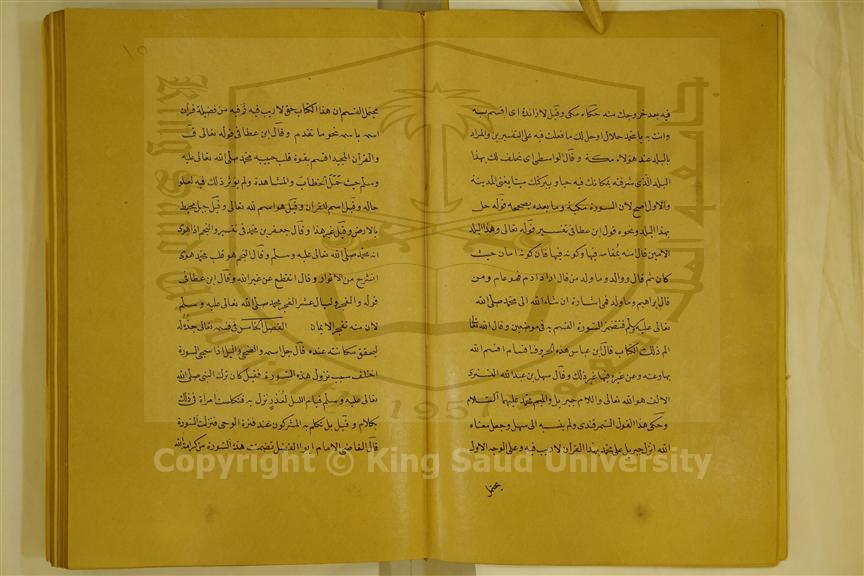 فيه بعد خروجك منه حكاه مكي وقيل لا زائدة اي اقسم به
وانت به يا محمد حلال او حل لك ما فعلت فيه على التفسيرين والمراد
بالبلد عند هولاء مكة وقال الواسطي اي نحلف لك بهذا
البلد الذي شرفته بمكانك فيه حيا وببركتك ميتا يعني المدينة
والاول اصح لان السورة مكية وما بعده يصححه قوله حل
بهذا البلد ونحوه قول ابن عطا في تفسير قوله تعالى وهذا البلد
الامين قال امنه بمقامه فيها وكونه فيها فان كونه امان حيث
كان ثم قال ووالد وما ولد من قال اراد ادم فهو عام ومن
قال ابراهيم وما ولد فهي اشارة ان شاء الله الى محمد صلى الله
تعالى عليه وسلم فتضمن السورة القسم به في موضعين وقال الله تعالى
الم ذلك الكتاب قال ابن عباس هذه الحروف اقسام اقسم الله
بها وعنه وعن غيره فيها غير ذلك وقال سهل بن عبد الله التستري
الالف هو الله تعالى واللام جبريل والميم محمد عليهما السلام
وحكى هذا القول السمرقندي ولم ينسبه الى سهل وجعل معناه
الله انزل جبريل على محمد بهذا القرآن لا ريب فيه وعلى الوجه الاول
يحتمل
يحتمل القسم ان هذا الكتاب حق لا ريب فيه ثم فيه من فضيلة قران
اسمه باسمه نحو ما تقدم وقال ابن عطا في قوله تعالى ق
والقرآن المجيد اقسم بقوة قلب حبيبه محمد صلى الله تعالى عليه
وسلم حيث حمل الخطاب والمشاهدة ولم يؤثر ذلك فيه لعلو
حاله وقيل اسم للقران وقيل هو اسم لله تعالى وقيل جبل محيط
بالارض وقيل غير هذا وقال جعفر بن محمد في تفسير والنجم اذا هوى
انه محمد صلى الله تعالى عليه وسلم وقال النجم هو قلب محمد هوى
انشرح من الانوار وقال انقطع عن غير الله وقال ابن عطا في
قوله والفجر وليال عشر الفجر محمد صلى الله تعالى عليه وسلم
لان منه تفجر الايمان الفصل الخامس في قسمه تعالى جده له
ليحقق مكانته عنده قال جل اسمه والضحى والليل اذا سجى السورة
اختلف سبب نزول هذه السورة فقيل كان ترك النبي صلى الله
تعالى عليه وسلم قيام الليل لعذر نزل به فتكلمت امراة في ذلك
بكلام وقيل بل تكلم به المشركون عند فترة الوحي فنزلت السورة
قال القاضي الامام ابو الفضل تضمنت هذه السورة من كرامة الله
Copyright © King Saud University
1957